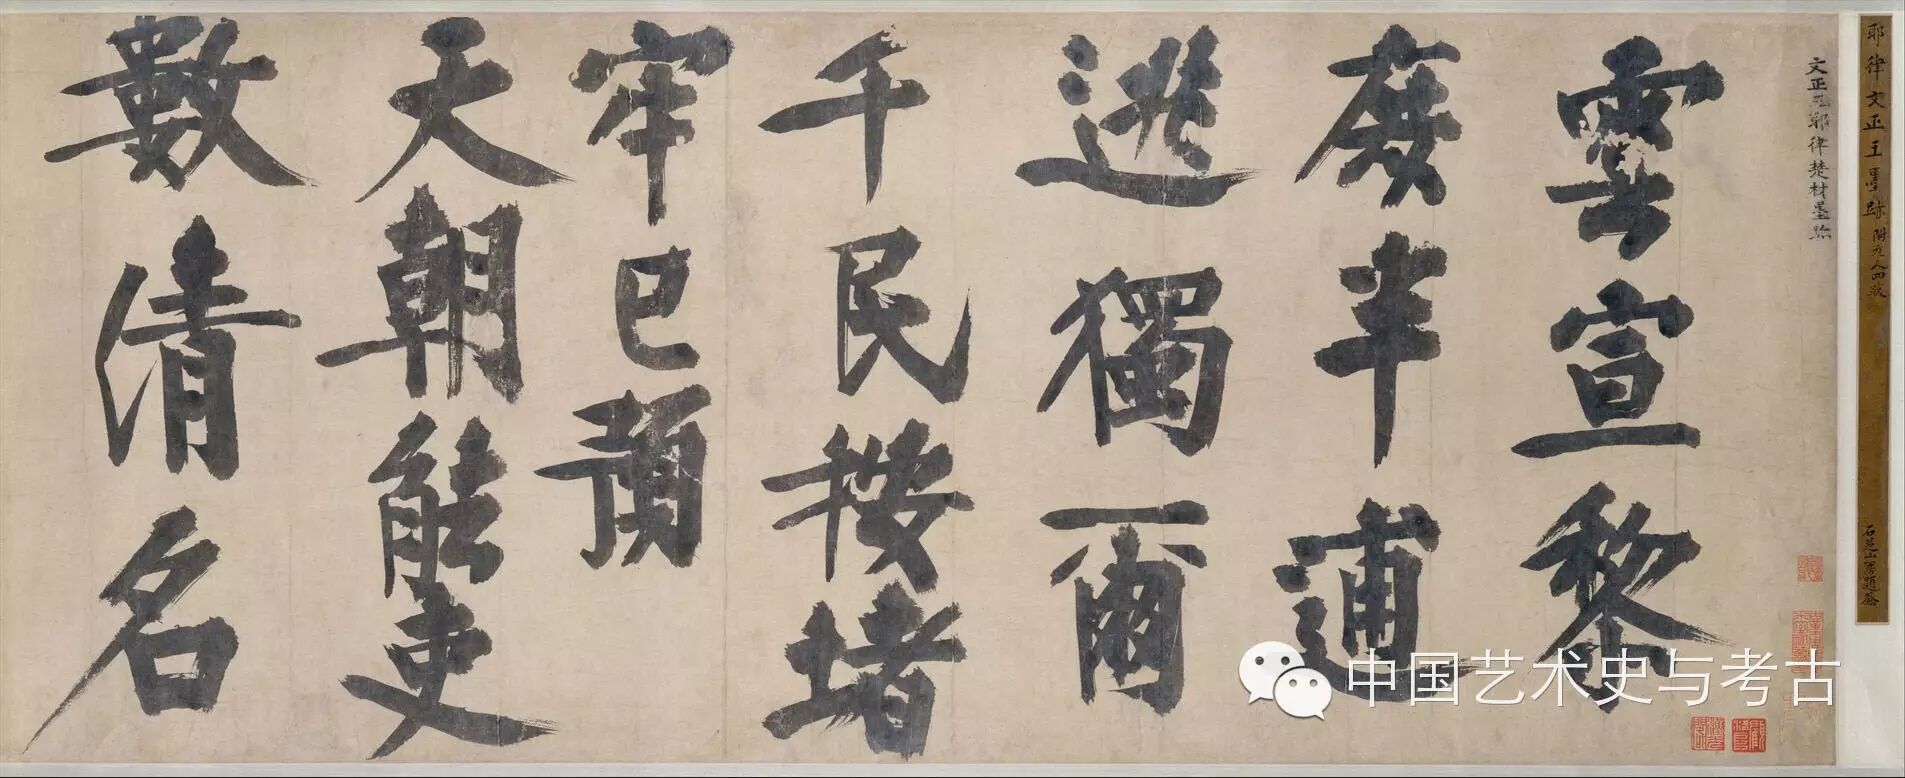 耶律文正王墨跡 附元人四跋
文正耶律楚材墨跡
雲宣黎
庶半逋
逃獨爾
千民按堵
牢已預
天朝能吏
數清名
中国艺术史与考古